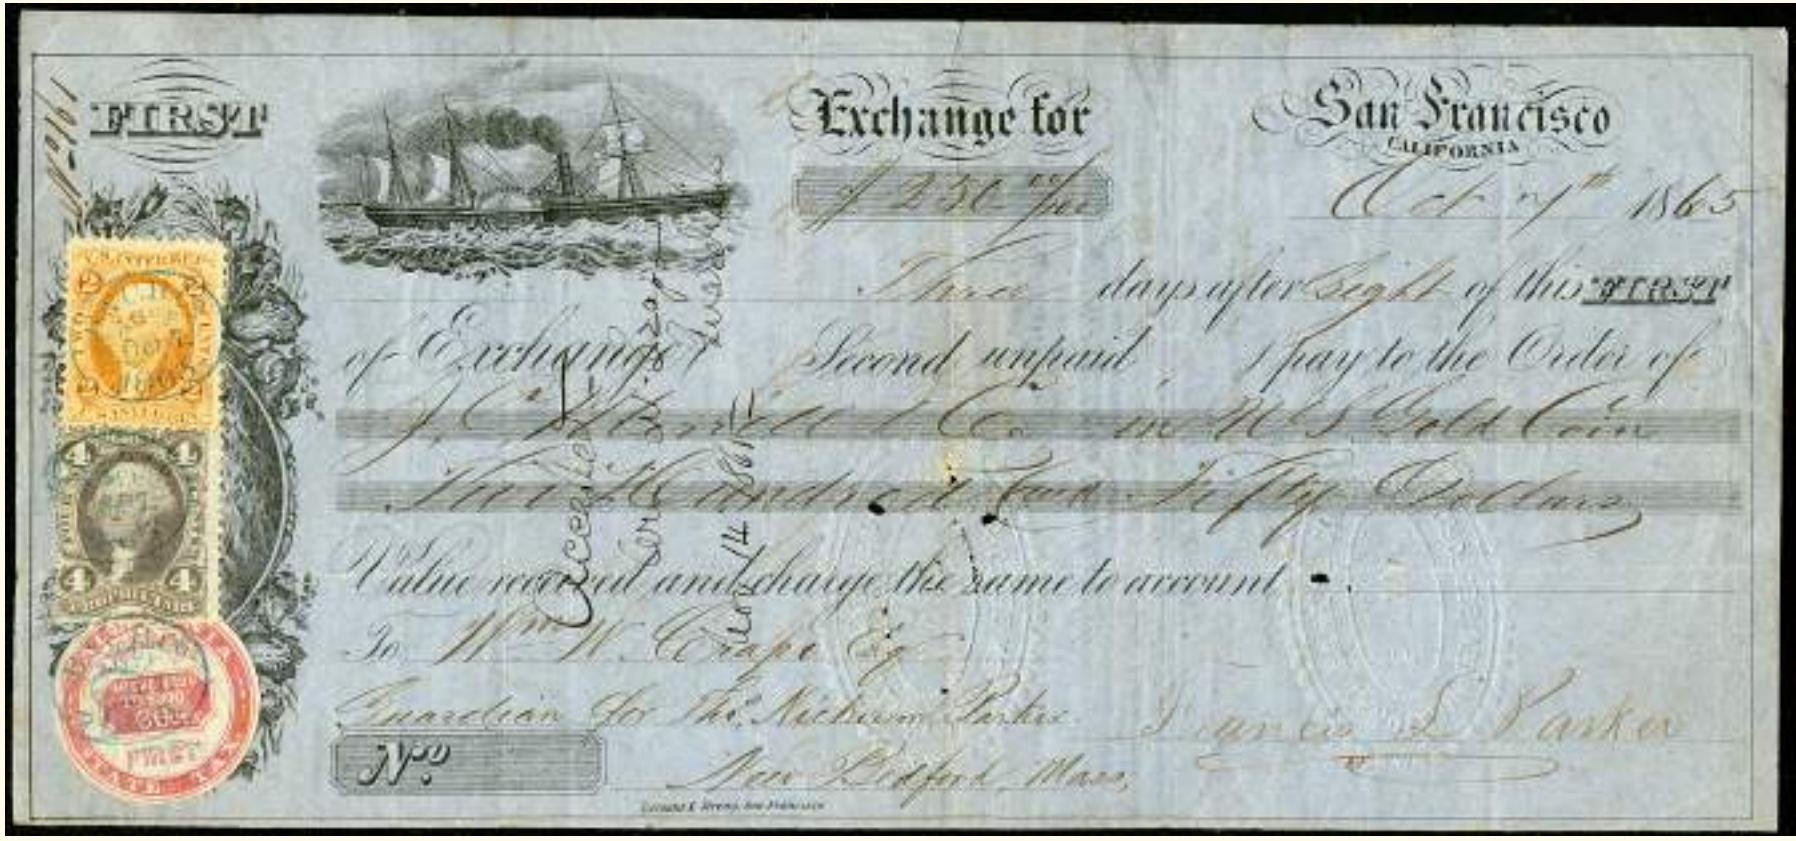 FIRST
Exchange for
San Francisco
CALIFORNIA
$250 00/100
Oct 7th 1865
Three days after sight of this FIRST
of Exchange Second unpaid, pay to the Order of
J. C. Merrill & Co. in U S Gold Coin
Two Hundred and Fifty Dollars
Value received and charge the same to account
To Wm W. Crapo Esq
Guardian for Thos. Nickerson Parker
Francis L Parker
No.
New Bedford, Mass,
Accepted
for
Nov 14 1865
U.S. INTER. REV.
2 2
TWO CENTS
2 2
4 4
4 4
FIRST